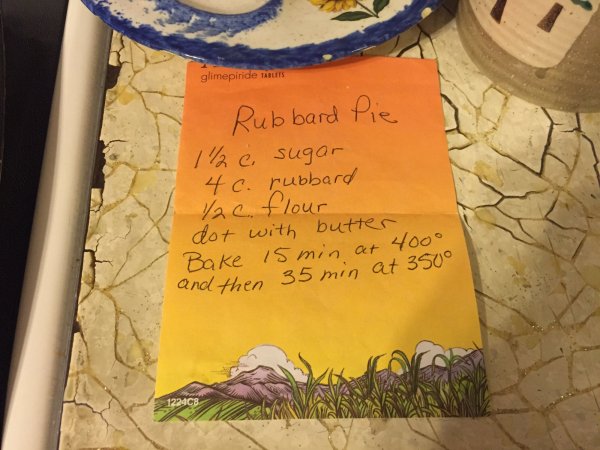 glimepiride TABLETS
Rubbard Pie
1 1/2 c. sugar
4 c. rubbard
1/2 c. flour
dot with butter
Bake 15 min at 400°
and then 35 min at 350°
1224C8